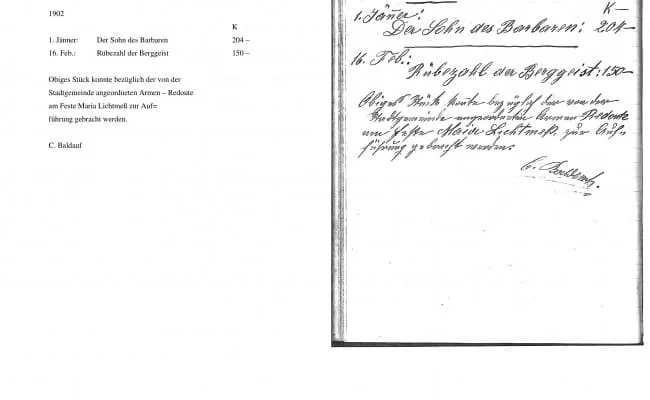 1902
K
1. Jänner: Der Sohn des Barbaren 204 –
16. Feb.: Rübezahl der Berggeist 150 –
Obiges Stück konnte bezüglich der von der
Stadtgemeinde angeordneten Armen – Redoute
am Feste Maria Lichtmeß zur Auf=
führung gebracht werden.
C. Baldauf
K –
1. Jänner:
Der Sohn des Barbaren: 204 –
16. Feb.:
Rübezahl der Berggeist: 150 –
Obiges Stück konnte bezüglich der von der
Stadtgemeinde angeordneten Armen Redoute
am Feste Maria Lichtmeß zur Auf=
führung gebracht werden.
C. Baldauf.